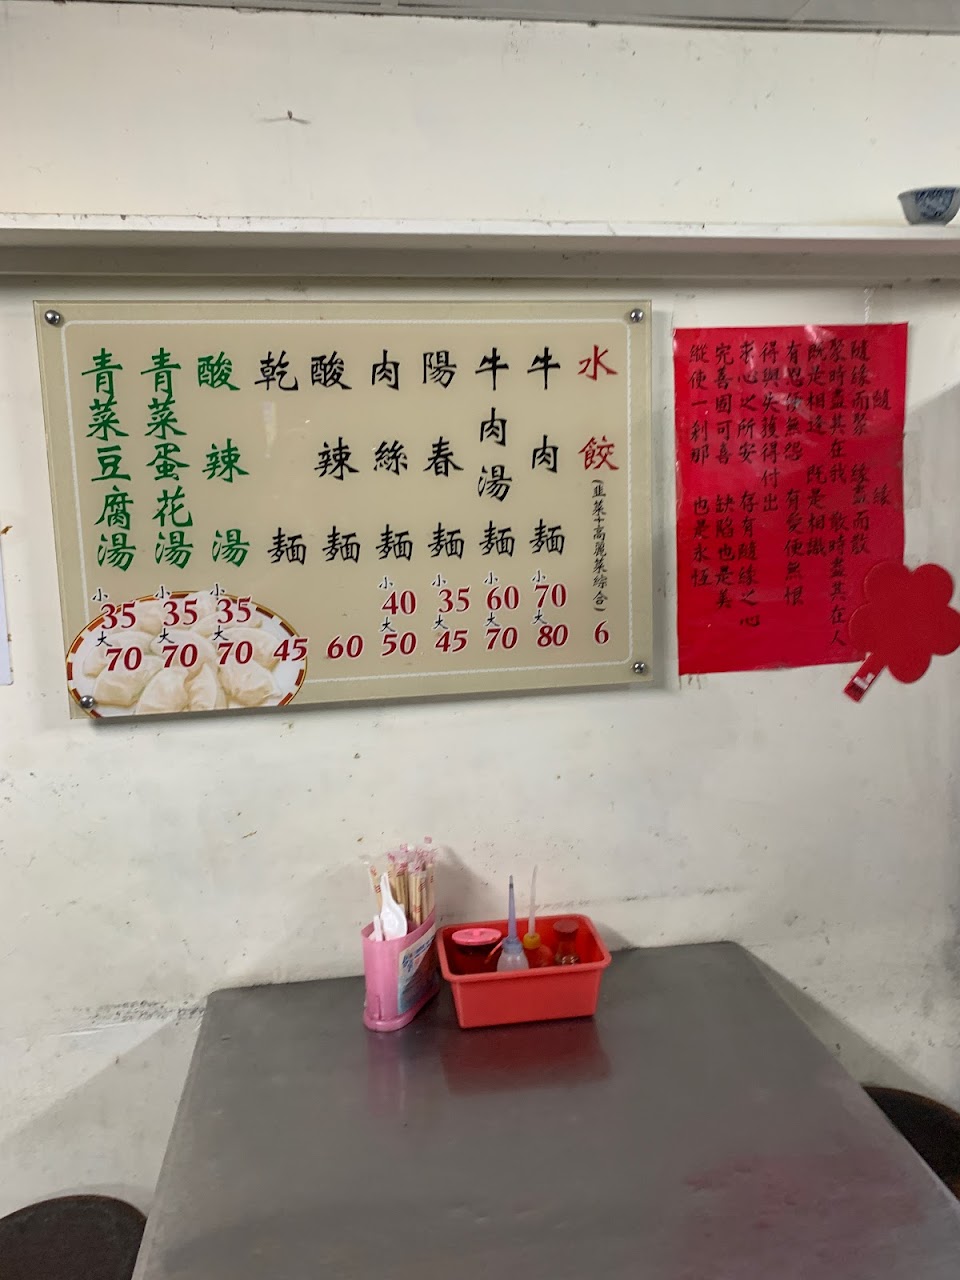 水餃(韭菜+高麗菜綜合) 6
牛肉麵 小70 大80
牛肉湯麵 小60 大70
陽春麵 小35 大45
肉絲麵 小40 大50
酸辣麵 60
乾麵 45
酸辣湯 小35 大70
青菜蛋花湯 小35 大70
青菜豆腐湯 小35 大70
隨緣
隨緣而聚 緣盡而散
聚時盡其在我 散時盡其在人
既是相逢 既是相識
有怨便無怨 有愛便無恨
得與失獲得付出
求心之所安 存有隨緣之心
完善固可喜 缺陷也是美
縱使一剎那 也是永恆